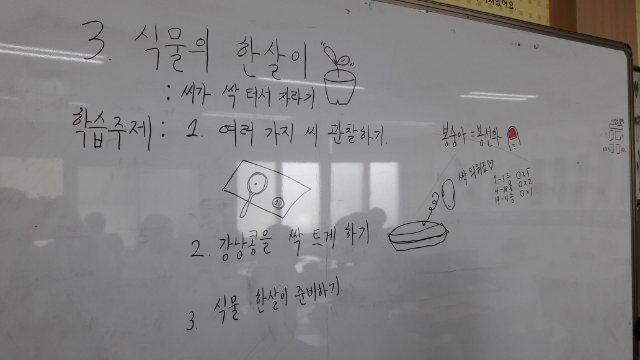 3. 식물의 한살이
: 씨가 싹 터서 자라기
학습주제 : 1. 여러 가지 씨 관찰하기.
봉숭아 = 봉선화
싹 틔워요♡
2. 강낭콩을 싹 트게 하기
3. 식물 한살이 준비하기